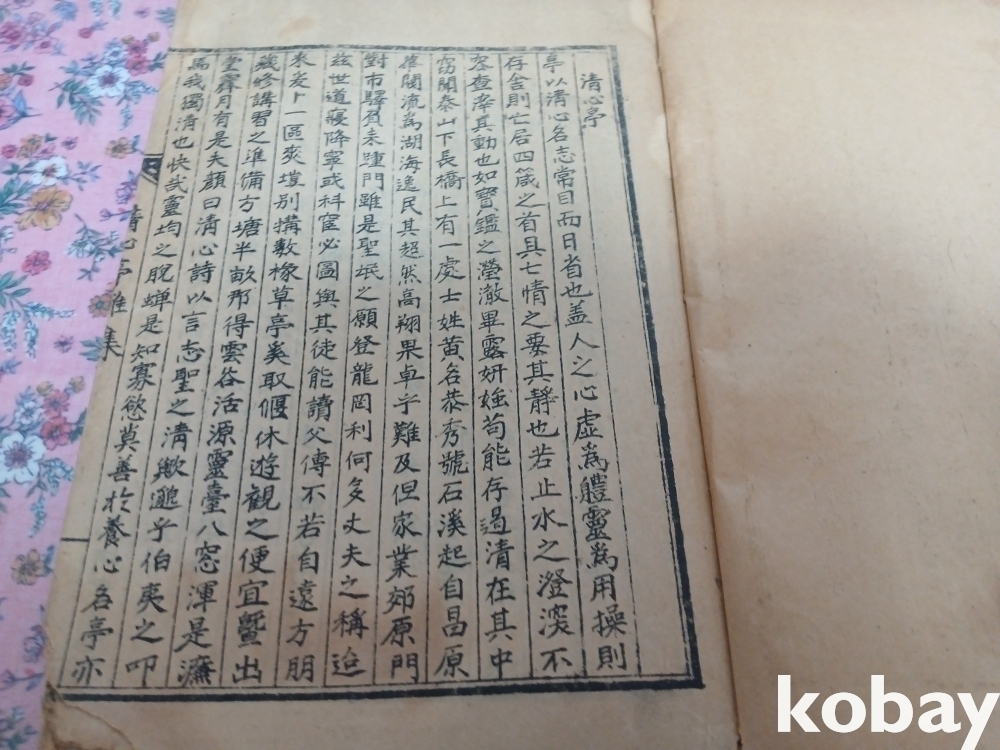 清心亭
亭以清心名志常目而日省也盖人之心虛爲體靈爲用操則
存舍則亡居四箴之首具七情之要其靜也若止水之澄深不
容查滓其動也如寶鑑之瀅澈畢露妍媸苟能存遏清在其中
窃聞泰山下長橋上有一處士姓黃名恭秀號石溪起自昌原
華閥流爲湖海逸民其超然高翔果卓乎難及但家業郊原門
對市驛負耒踵門雖是聖氓之願登龍罔利何多丈夫之稱迨
玆世道寢降寧或科窠必圖與其徒能讀父傳不若自遠方朋
來爰卜一區爽塏別搆數椽草亭奚取偃休遊観之便宜曁出
藏修講習之準備方塘半畝那得雲谷活源靈臺八窓渾是濂
堂霽月有是夫顔曰淸心詩以言志聖之清歟邈乎伯夷之叩
馬我獨淸也快哉靈均之脫蟬是知寡慾莫善於養心名亭亦
清心亭雅集
kobay